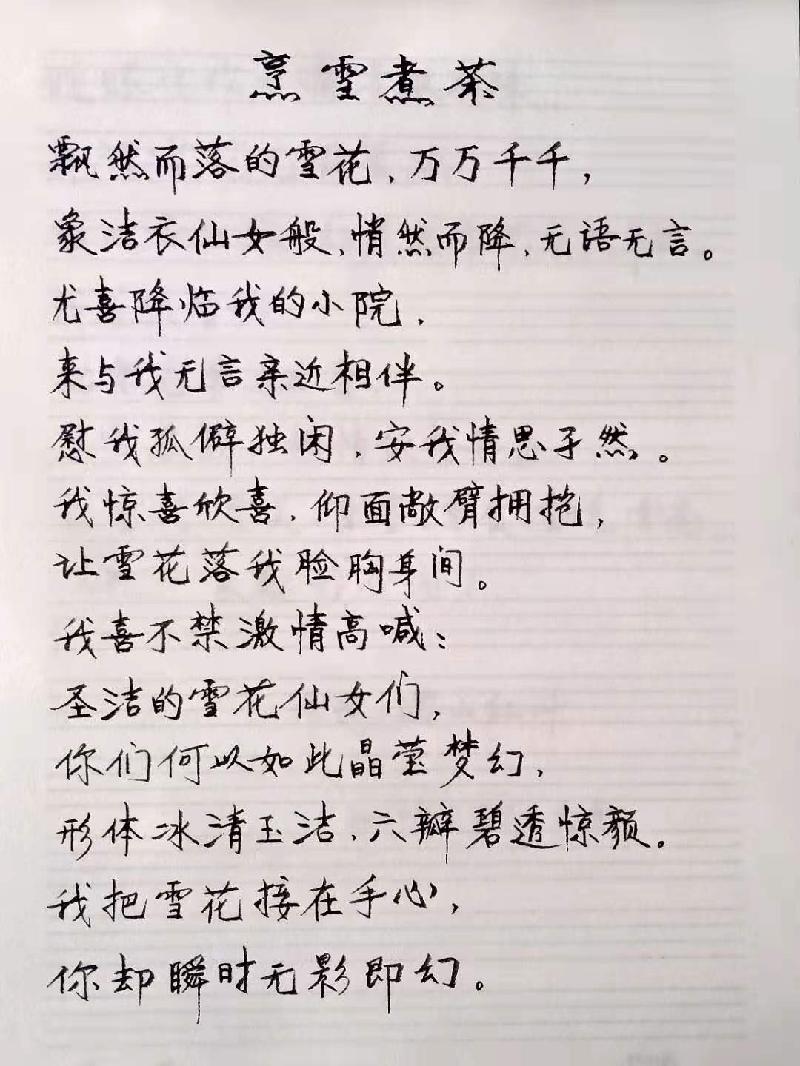 烹雪煮茶
飘然而落的雪花,万万千千,
象洁衣仙女般,悄然而降,无语无言。
尤喜降临我的小院,
来与我无言亲近相伴。
慰我孤僻独闲,安我情思孑然。
我惊喜欣喜,仰面敞臂拥抱,
让雪花落我脸胸身间。
我喜不禁激情高喊:
圣洁的雪花仙女们,
你们何以如此晶莹梦幻,
形体冰清玉洁,六瓣碧透惊颜。
我把雪花接在手心,
你却瞬时无影即幻。